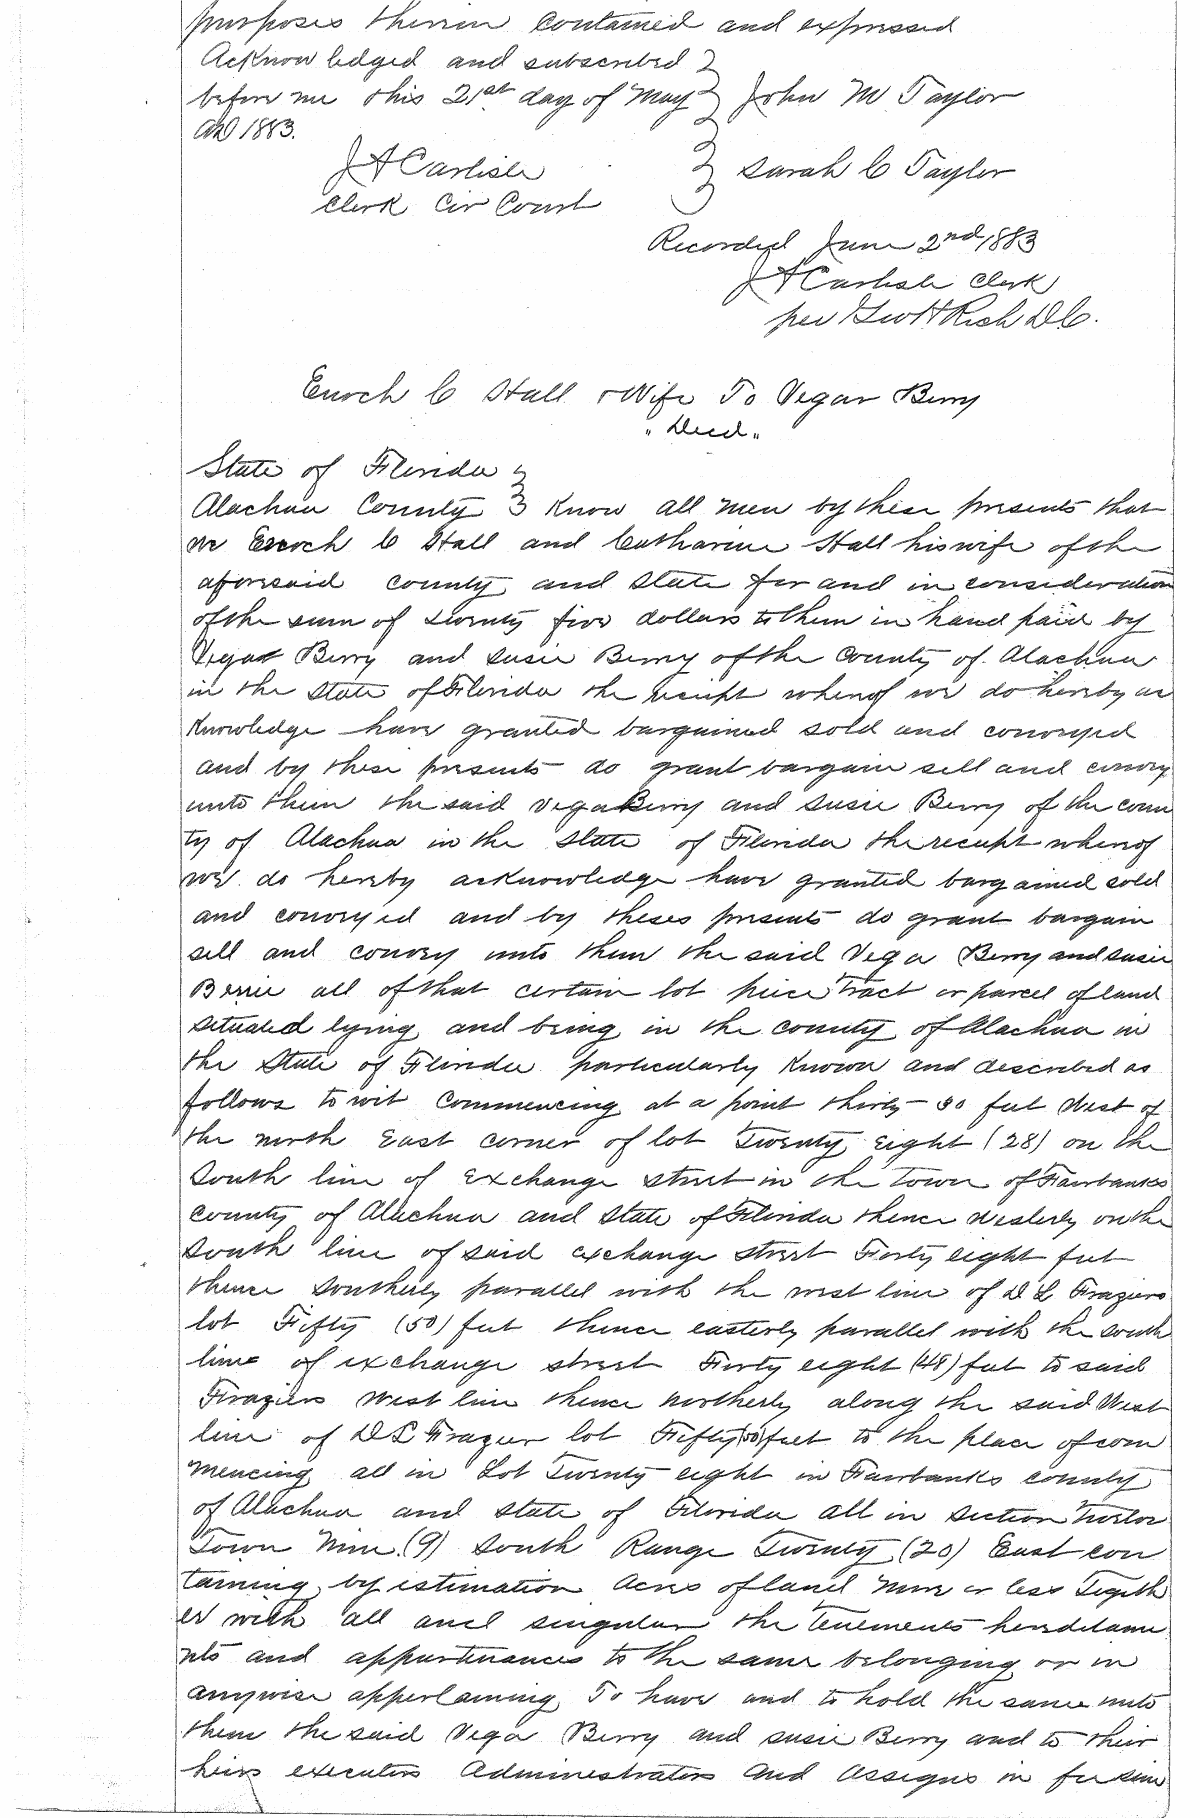 purposes therein contained and expressed
Acknowledged and subscribed
before me this 21st day of May John M Taylor
AD 1883.
J A Carlisle Sarah C Taylor
Clerk Cir Court
Recorded June 2nd 1883
J A Carlisle Clerk
per Geo H Rich D.C.
Enoch C Hall & Wife To Vegar Berry
"Deed"
State of Florida
Alachua County Know all men by these presents that
we Enoch C Hall and Catharine Hall his wife of the
aforesaid county and state for and in consideration
of the sum of twenty five dollars to them in hand paid by
Vegar Berry and Susie Berry of the County of Alachua
in the State of Florida the receipt whereof we do hereby ac
knowledge have granted bargained sold and conveyed
and by these presents do grant bargain sell and convey
unto them the said Vega Berry and Susie Berry of the coun
ty of Alachua in the State of Florida the receipt whereof
we do hereby acknowledge have granted bargained sold
and conveyed and by theses presents do grant bargain
sell and convey unto them the said Vega Berry and Susie
Berrie all of that certain lot piece Tract or parcel of land
situated lying and being in the county of Alachua in
the State of Florida particularly known and described as
follows to wit Commencing at a point thirty - 30 feet West of
the north East corner of lot Twenty Eight (28) on the
South line of Exchange street in the town of Fairbanks
county of Alachua and State of Florida thence Westerly on the
South line of said exchange street Forty eight feet
thence Southerly parallel with the west line of D L Fraziers
lot Fifty (50) feet thence easterly parallel with the south
line of exchange street Forty eight (48) feet to said
Fraziers West line thence northerly along the said West
line of D L Frazier lot Fifty (50) feet to the place of com
mencing all in Lot Twenty eight in Fairbanks county
of Alachua and State of Florida all in Section Twelve
Town Nine (9) South Range Twenty (20) East con
taining by estimation Acres of land more or less Togeth
er with all and singular the tenements heredetame
nts and appurtenances to the same belonging or in
anywise appertaining To have and to hold the same unto
them the said Vega Berry and Susie Berry and to their
heirs executors Administrators and Assigns in fee sim